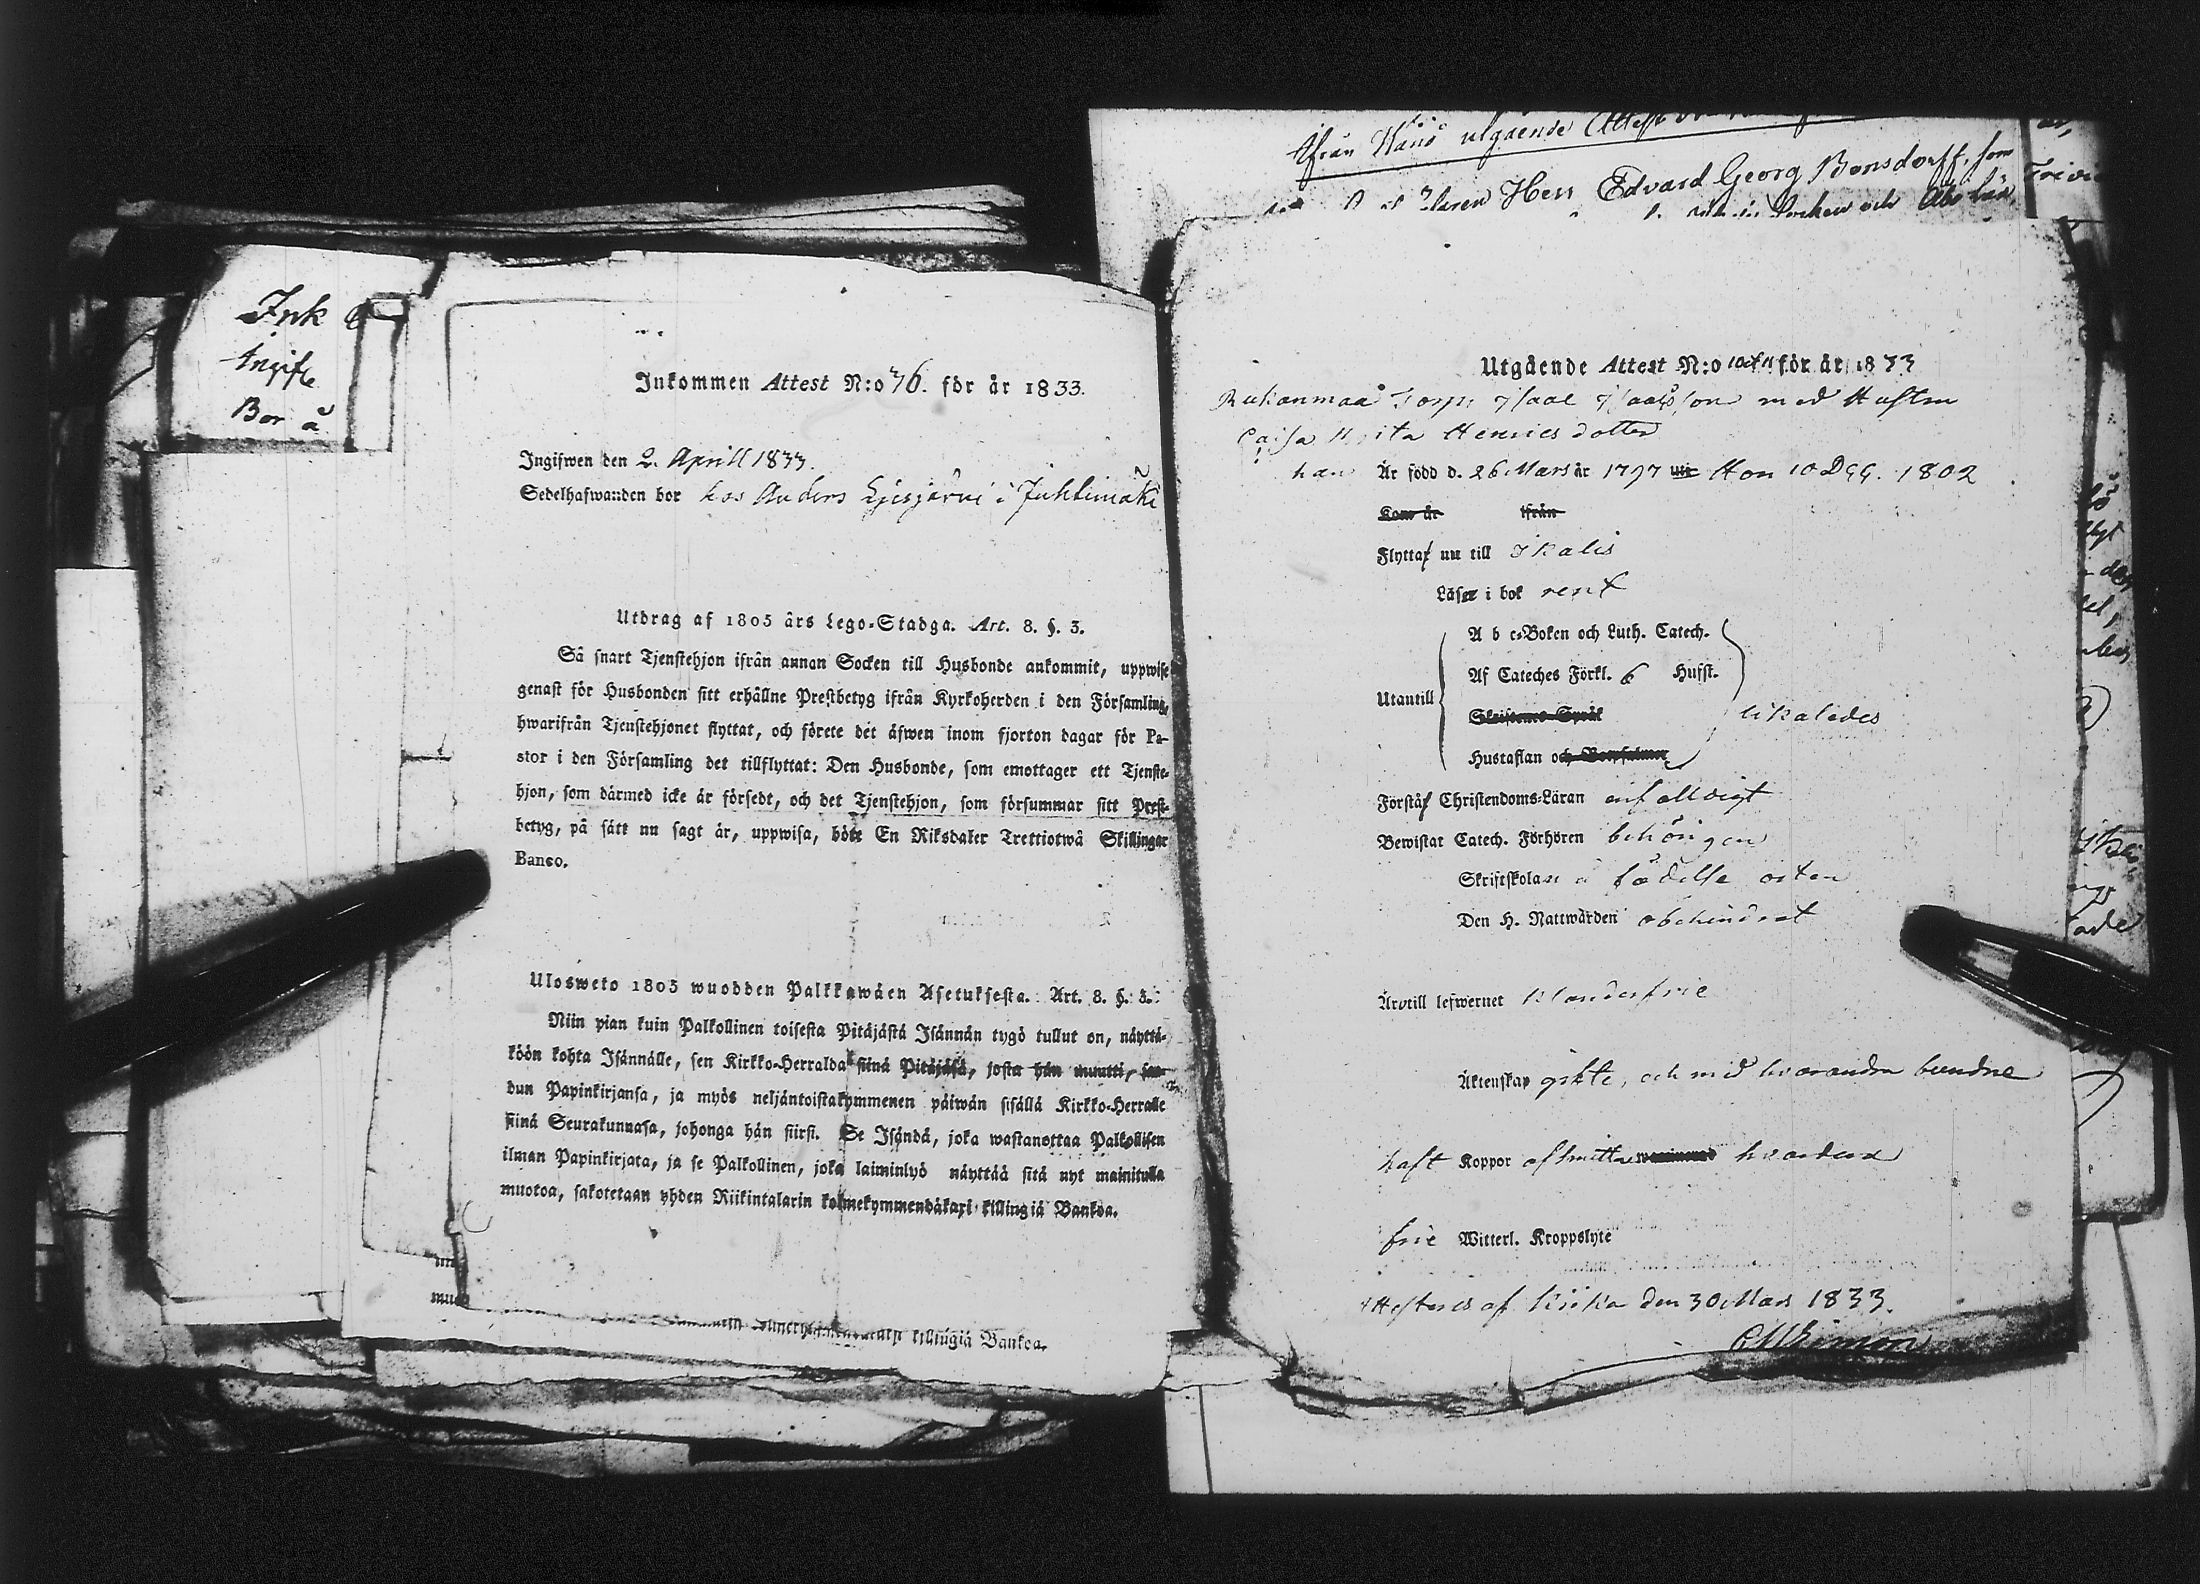 Ink
Angifte
Bor å
Inkommen Attest N:o 76. för år 1833.
Ingifwen den 2. Aprill 1833.
Sedelhafwanden bor hos Anders i Juhtimäki
Utdrag af 1805 års Lego-Stadga. Art. 8. §. 3.
Så snart Tjenstehjon ifrån annan Socken till Husbonde ankommit, uppwise
genast för Husbonden sitt erhållne Prestbetyg ifrån Kyrkoherden i den Församling,
hwarifrån Tjenstehjonet flyttat, och förete det äfwen inom fjorton dagar för Pa-
stor i den Församling det tillflyttat: Den Husbonde, som emottager ett Tjenste-
hjon, som därmed icke är försedt, och det Tjenstehjon, som försummar sitt Prest-
betyg, på sätt nu sagt är, uppwisa, böte En Riksdaler Trettiotwå Skillingar
Banco.
Ulosweto 1805 wuodden Palkkawäen Asetuksesta. Art. 8. §. 3.
Niin pian kuin Palkollinen toisesta Pitäjästä Isännän tygö tullut on, näyttä-
köön kohta Isännälle, sen Kirkko-Herralda siinä Pitäjäsä, josta hän muutti, saa-
dun Papinkirjansa, ja myös neljäntoistakymmenen päiwän sisällä Kirkko-Herralle
siinä Seurakunnasa, johonga hän siirsi. Se Isändä, joka wastanottaa Palkollisen
ilman Papinkirjata, ja se Palkollinen, joka laiminlyö näyttää sitä nyt mainitulla
muotoa, sakotetaan yhden Riikintalarin kolmekymmendäkaxi killingiä Bankoa.
muo
killingiä Bankoa.
Ifrån utgående Attest
Herr Edvard Georg Bonsdorff, som
Socken och Åbo län
Utgående Attest N:o för år 1833
Torp. Isaac Isaacsson med Hustru
Caisa Henricsdotter
han Är född d. 26 Mars år 1797 Hon 10 1802
Kom år ifrån
Flytta nu till Ikalis
Läser i bok rent
A b c-Boken och Luth. Catech.
Af Cateches Förkl. 6 Hufst.
Utantill
Skriftenes Språk
likaledes
Hustaflan och Botpsalmer
Förstå Christendoms-Läran enfalldigt
Bewistat Catech. Förhören behörigen
Skriftskolan å födelse orten
Den H. Nattwarden obehindrat
Ärotill lefwernet klanderfrie
Äktenskap gifte, och med hvarandra bundne
haft Koppor
frie Witterl. Kroppslyte
Attesteras af Kirika den 30 Mars 1833.